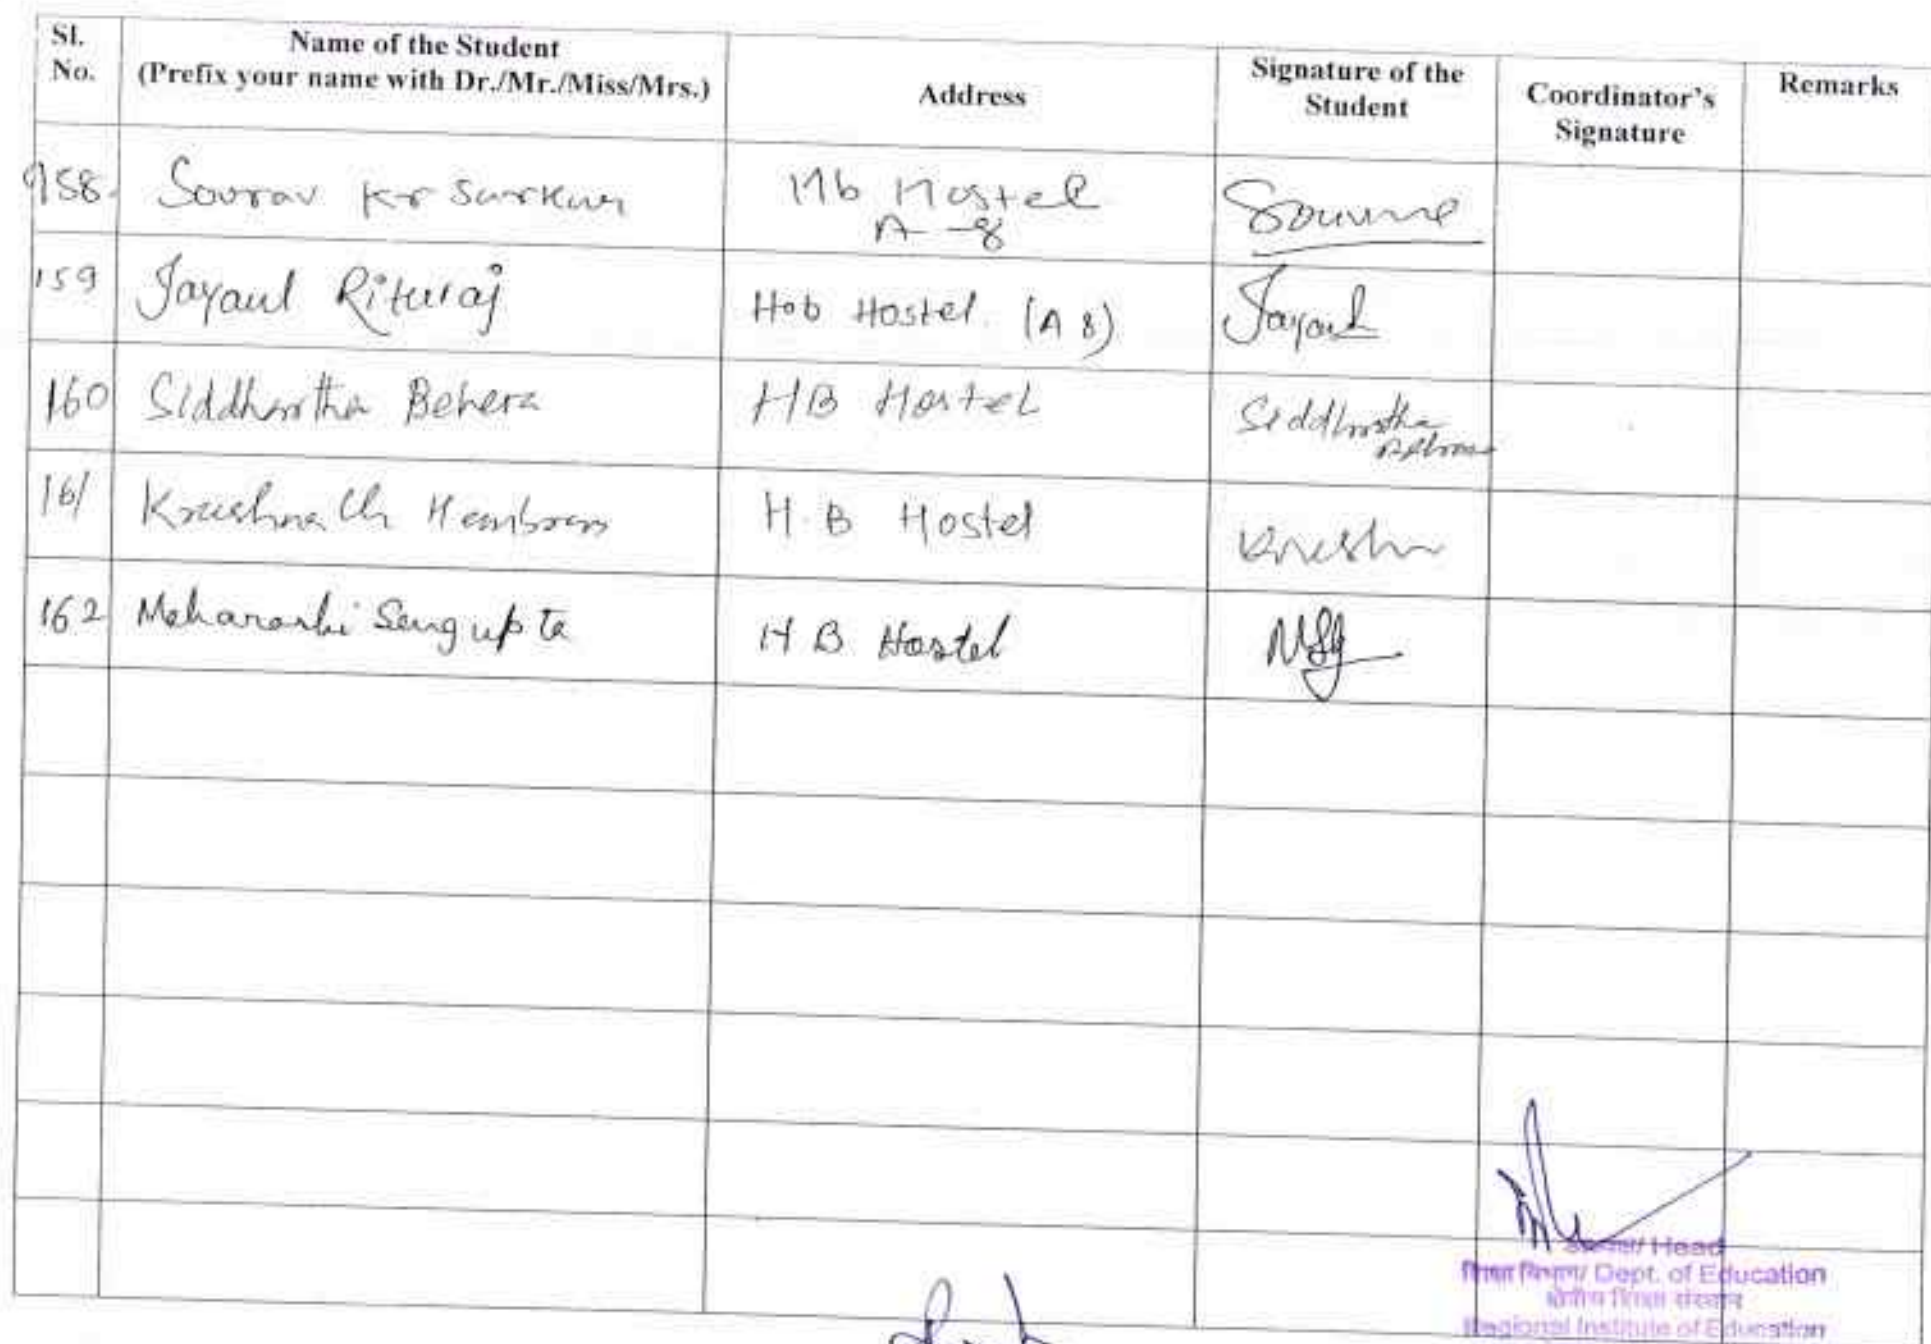 Sl. No.
Name of the Student
(Prefix your name with Dr./Mr./Miss/Mrs.)
Address
Signature of the Student
Coordinator's Signature
Remarks
158. Sourav Kr Sarkar Hb Hostel
A-8
159 Jayant Rituraj Hob Hostel. (A 8) Jayant
160 Siddhartha Behera HB Hostel Siddhartha
161 Krushna Ch Hembram H.B Hostel Krushn
162 Maharashi Sengupta H B Hostel
/ Head
शिक्षा विभाग/ Dept. of Education
क्षेत्रीय शिक्षा संस्थान
Regional Institute of Education